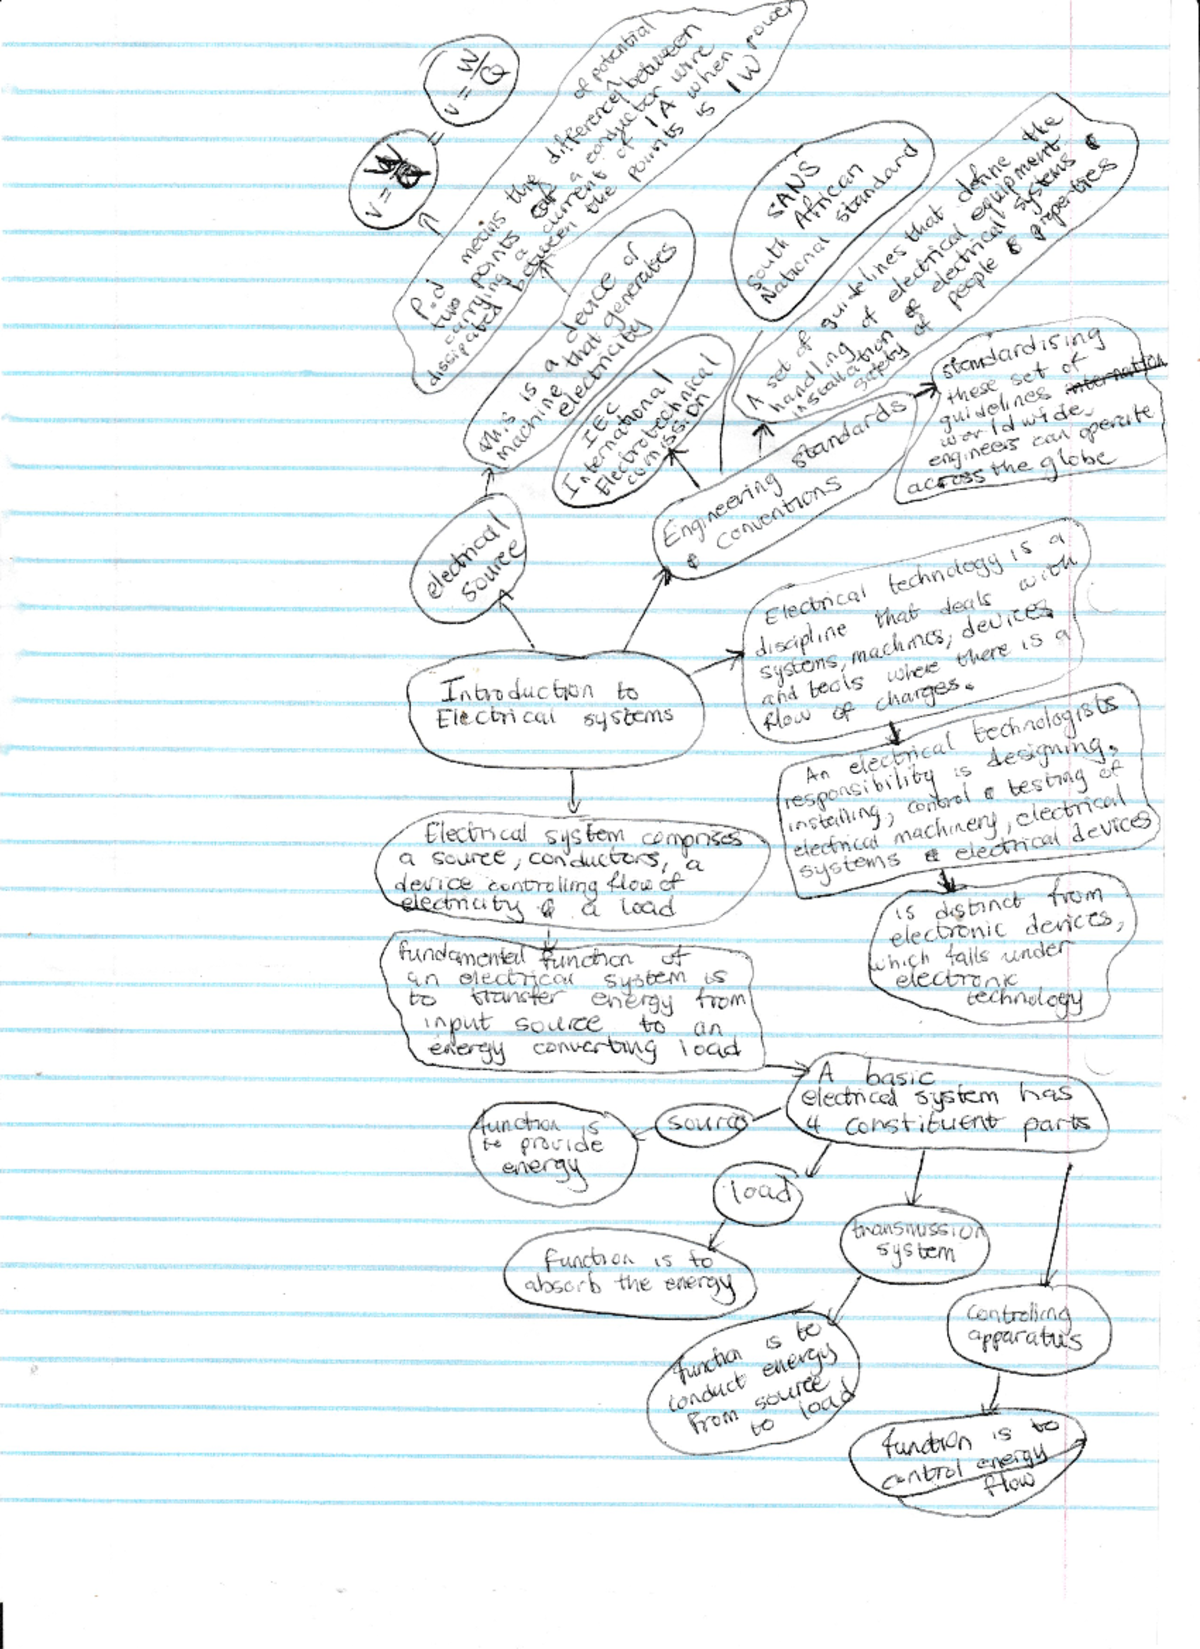 v = W/Q
=
v =
P.d means the of potential
difference between
two points of a conductor wire
carrying a current of 1A when power
dissipated between the points is 1W
This is a device or
machine that generates
electricity
electrical
source
IEC
International
Electrotechnical
comission
SANS
South African
National standard
A set of guidelines that define the
handling of electrical equipment
installation of electrical systems &
safety of people & properties
Engineering standards
& conventions
standardising
these set of
guidelines
worldwide.
engineers can operate
across the globe
Introduction to
Electrical systems
Electrical technology is a
discipline that deals with
systems, machines, devices
and tools where there is a
flow of charges.
An electrical technologists
responsibility is designing,
installing, control & testing of
electrical machinery, electrical
systems & electrical devices
is distinct from
electronic devices,
which falls under
electronic
technology
Electrical system comprises
a source, conductors, a
device controlling flow of
electricity & a load
Fundamental function of
an electrical system is
to transfer energy from
input source to an
energy converting load
A basic
electrical system has
4 constituent parts
source
function is
to provide
energy
load
function is to
absorb the energy
transmission
system
function is to
conduct energy
from source
to load
controlling
apparatus
function is to
control energy
flow